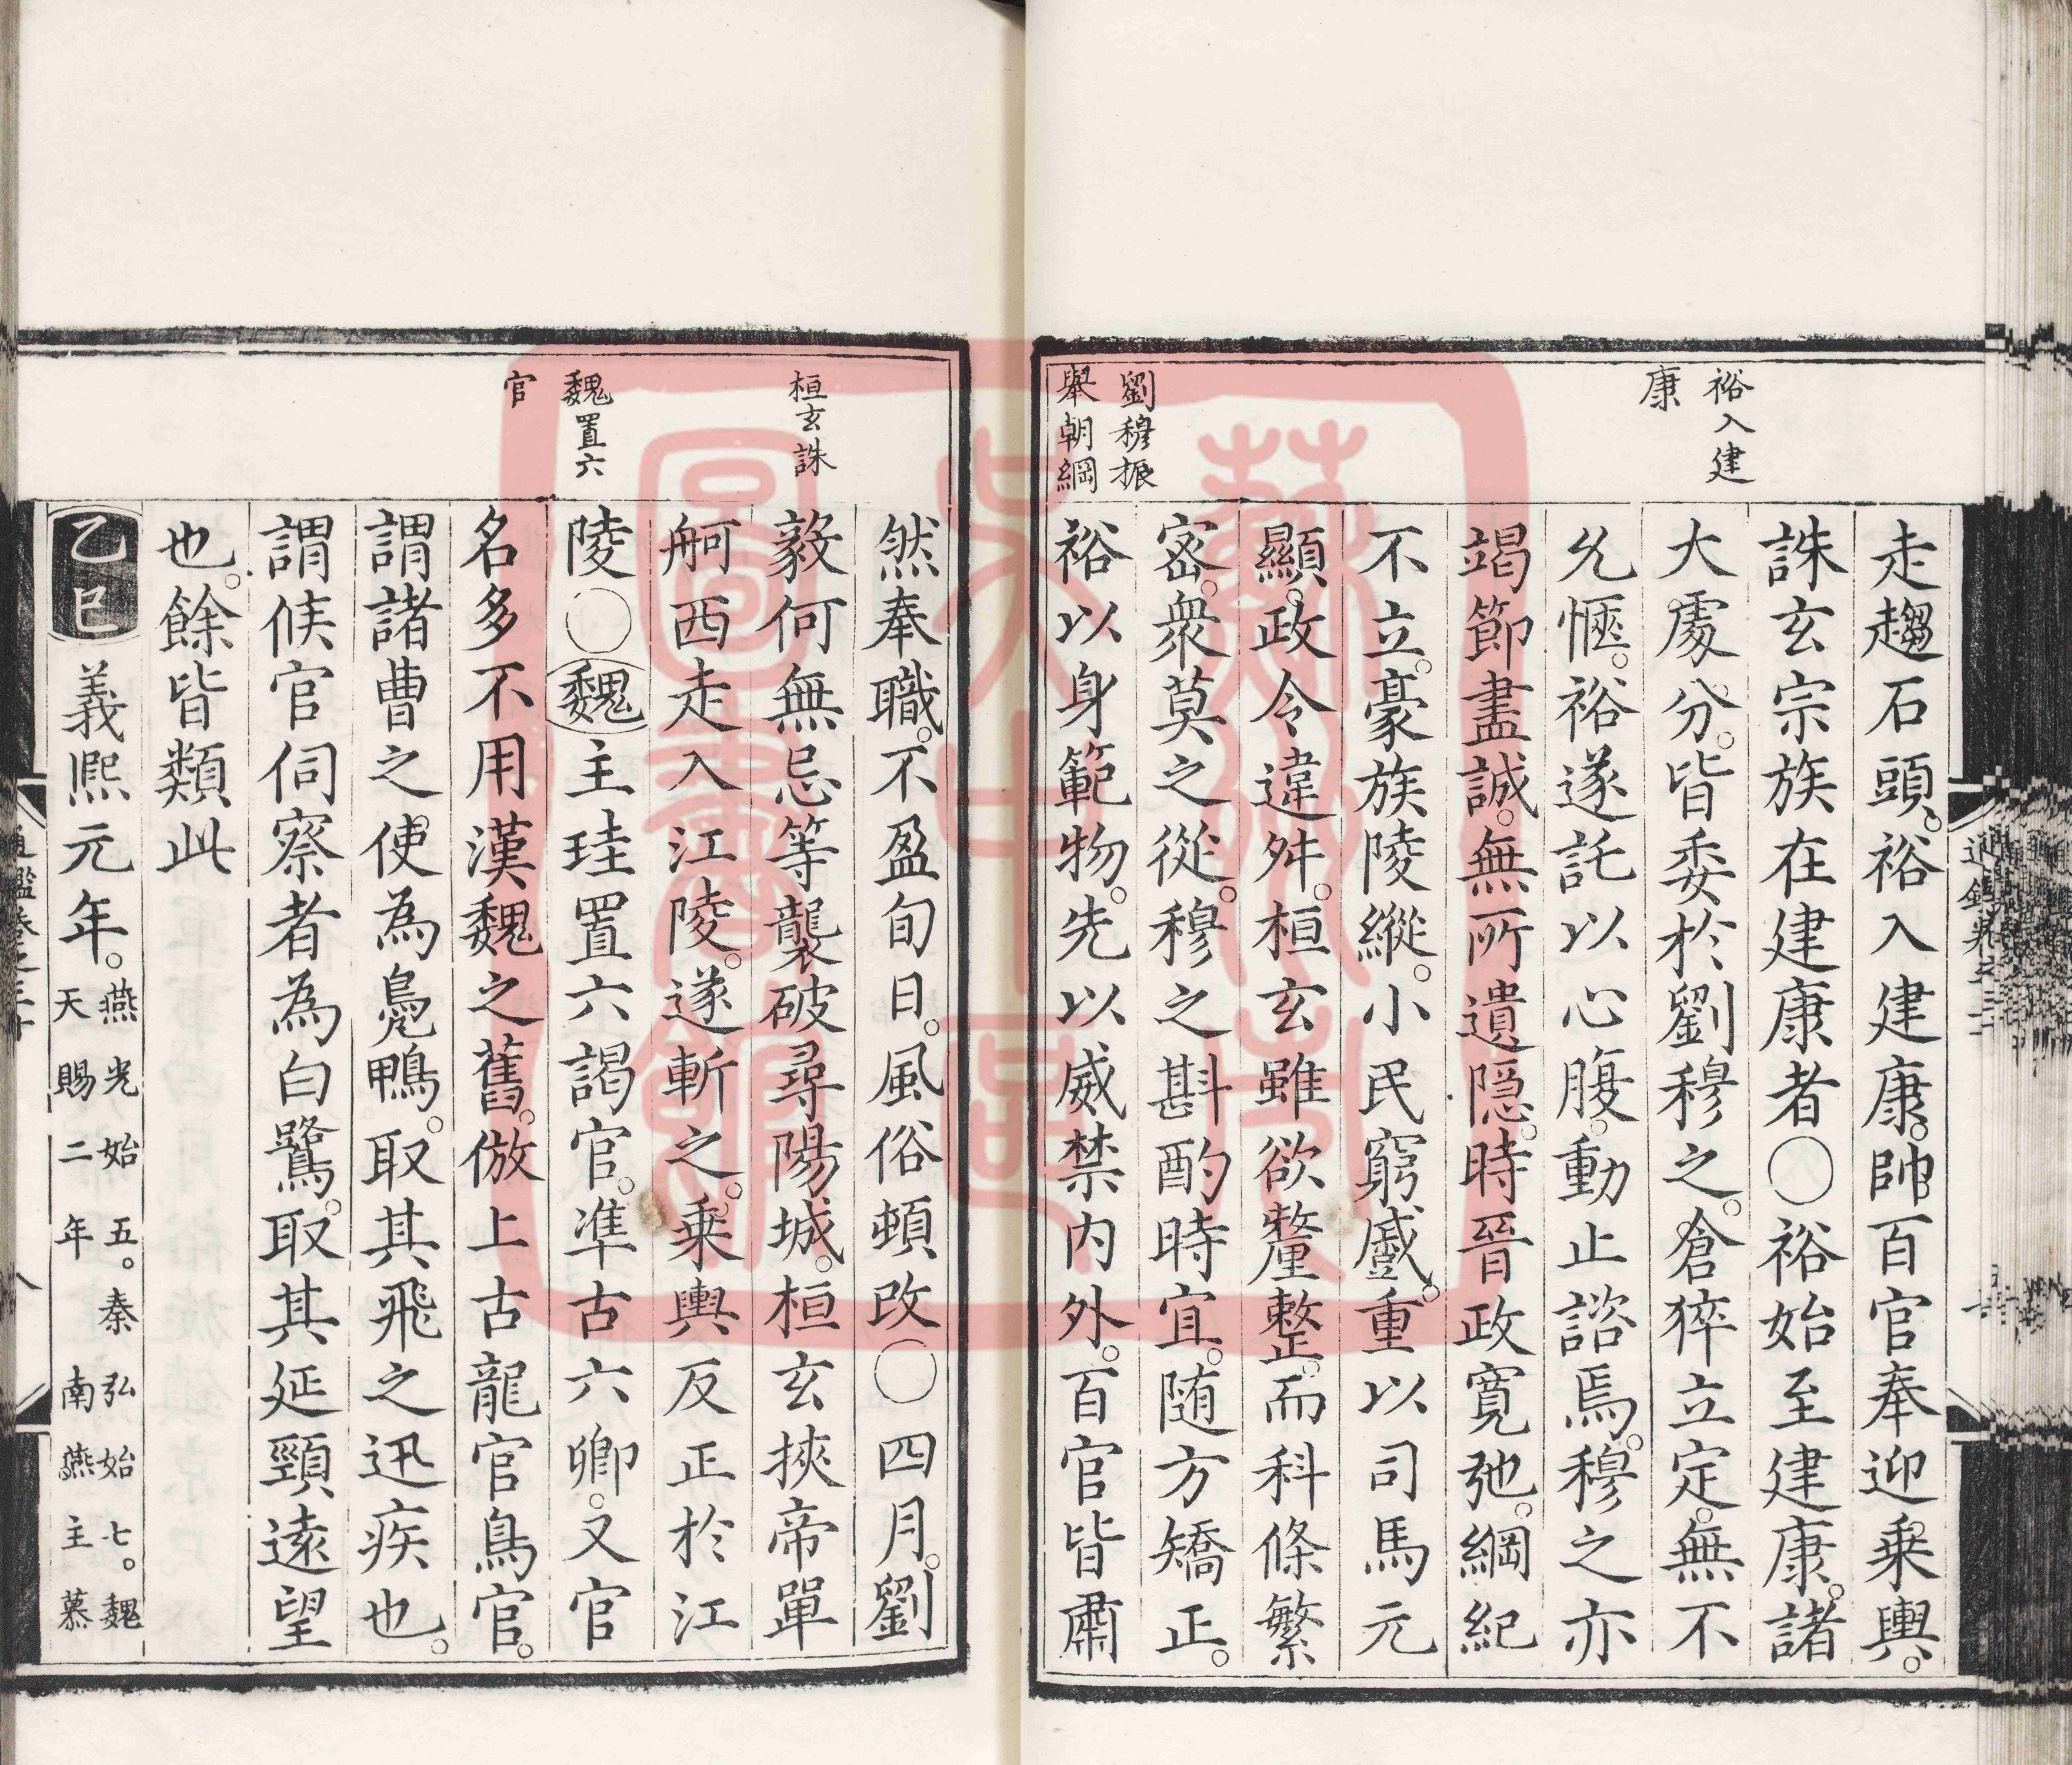 裕入建
康
劉穆振
舉朝綱
走趨石頭。裕入建康。帥百官奉迎乗輿。
誅玄宗族在建康者○裕始至建康。諸
大處分。皆委於劉穆之。倉猝立定。無不
允愜。裕遂託以心腹。動止諮焉。穆之亦
竭節盡誠。無所遺隠。時晉政寛弛。綱紀
不立。豪族陵縱。小民窮蹙。重以司馬元
顯。政令違舛。桓玄雖欲釐整。而科條繁
宻。衆莫之從。穆之斟酌時宜。随方矯正。
裕以身範物。先以威禁内外。百官皆肅
桓玄誅
魏置六
官
然奉職。不盈旬日。風俗頓改○四月。劉
毅何無忌等襲破尋陽城。桓玄挾帝單
舸西走入江陵。遂斬之。乗輿反正於江
陵○魏主珪置六謁官。凖古六卿。又官
名多不用漢魏之舊。倣上古龍官鳥官。
謂諸曹之使為鳧鴨。取其飛之迅疾也。
謂候官伺察者為白鷺。取其延頸遠望
也。餘皆類此
乙巳義熈元年。燕光始五。秦弘始七。魏
天賜二年南燕主慕